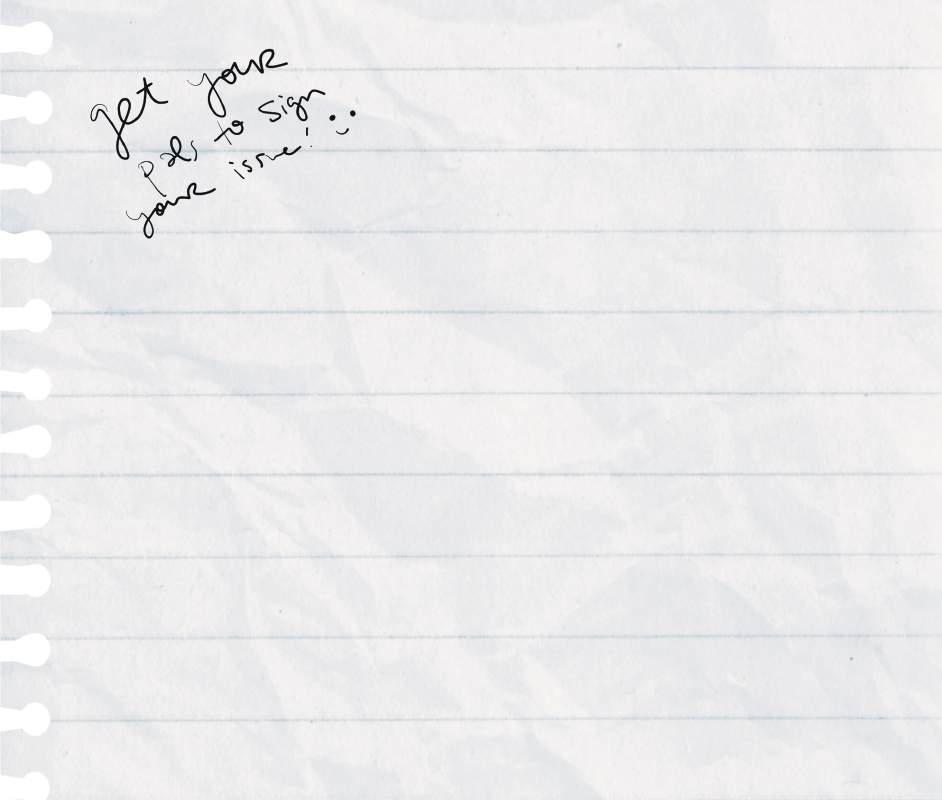 get your
pals to sign
your issue! :)